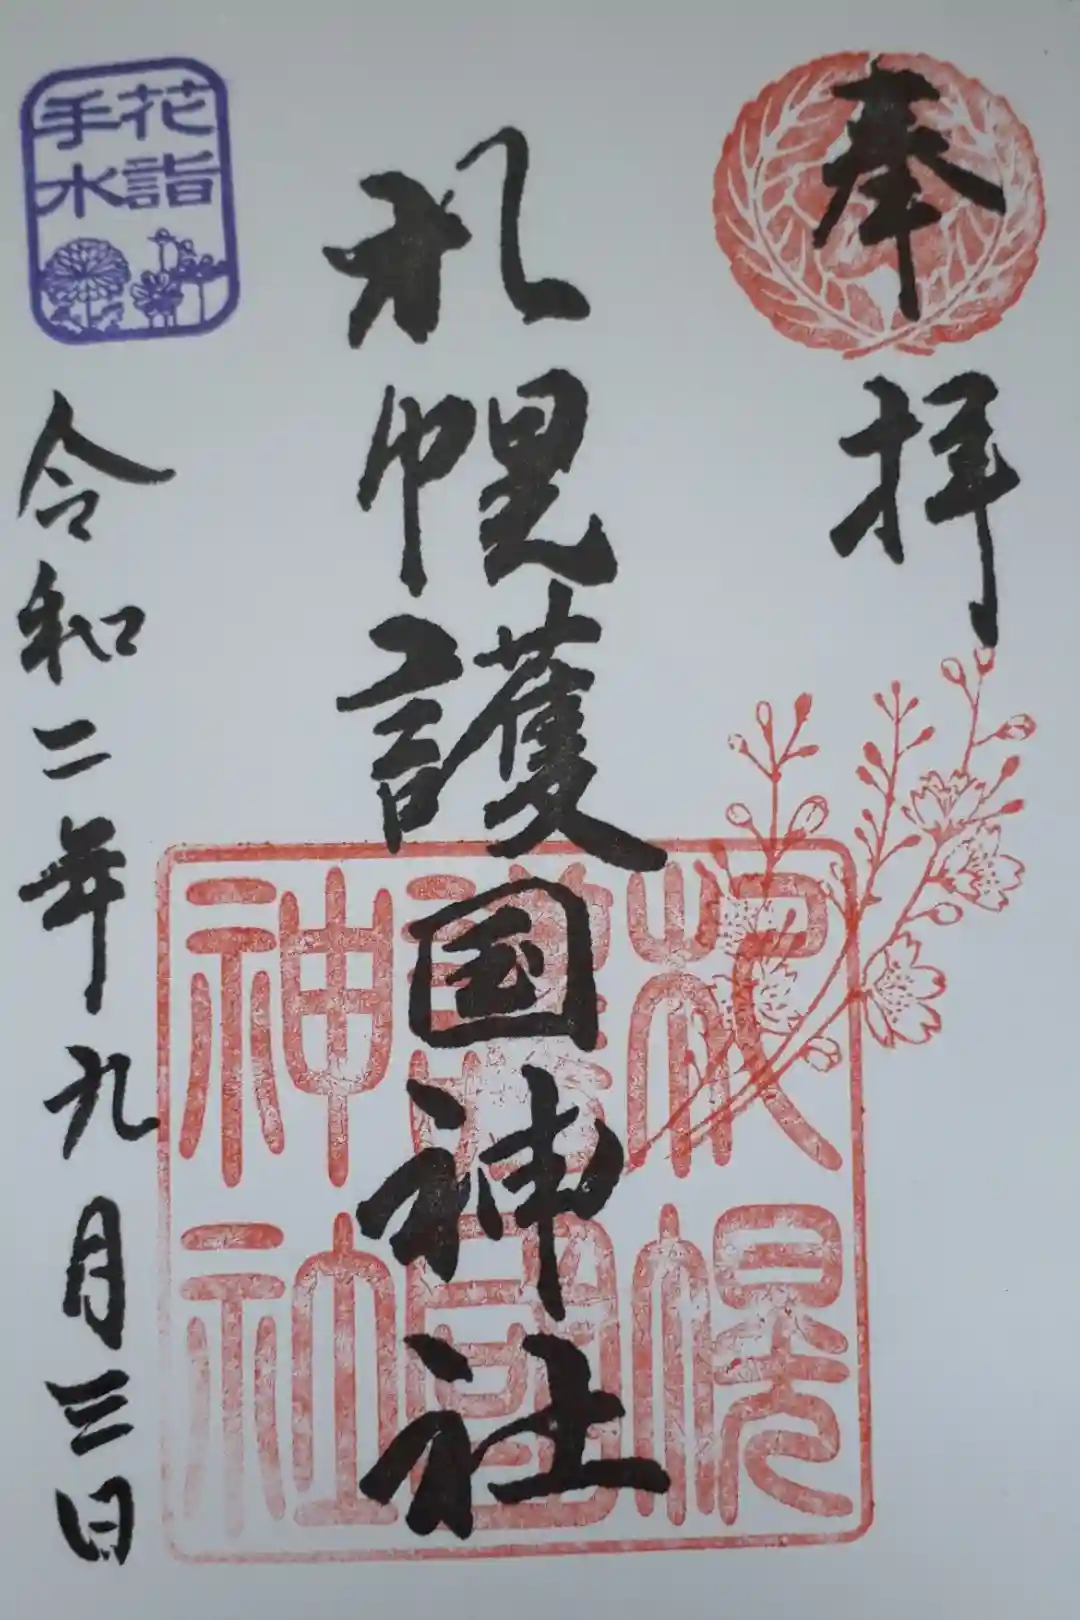 奉拝
札幌護国神社
札幌
護國
神社
令和二年九月三日
花詣
手水